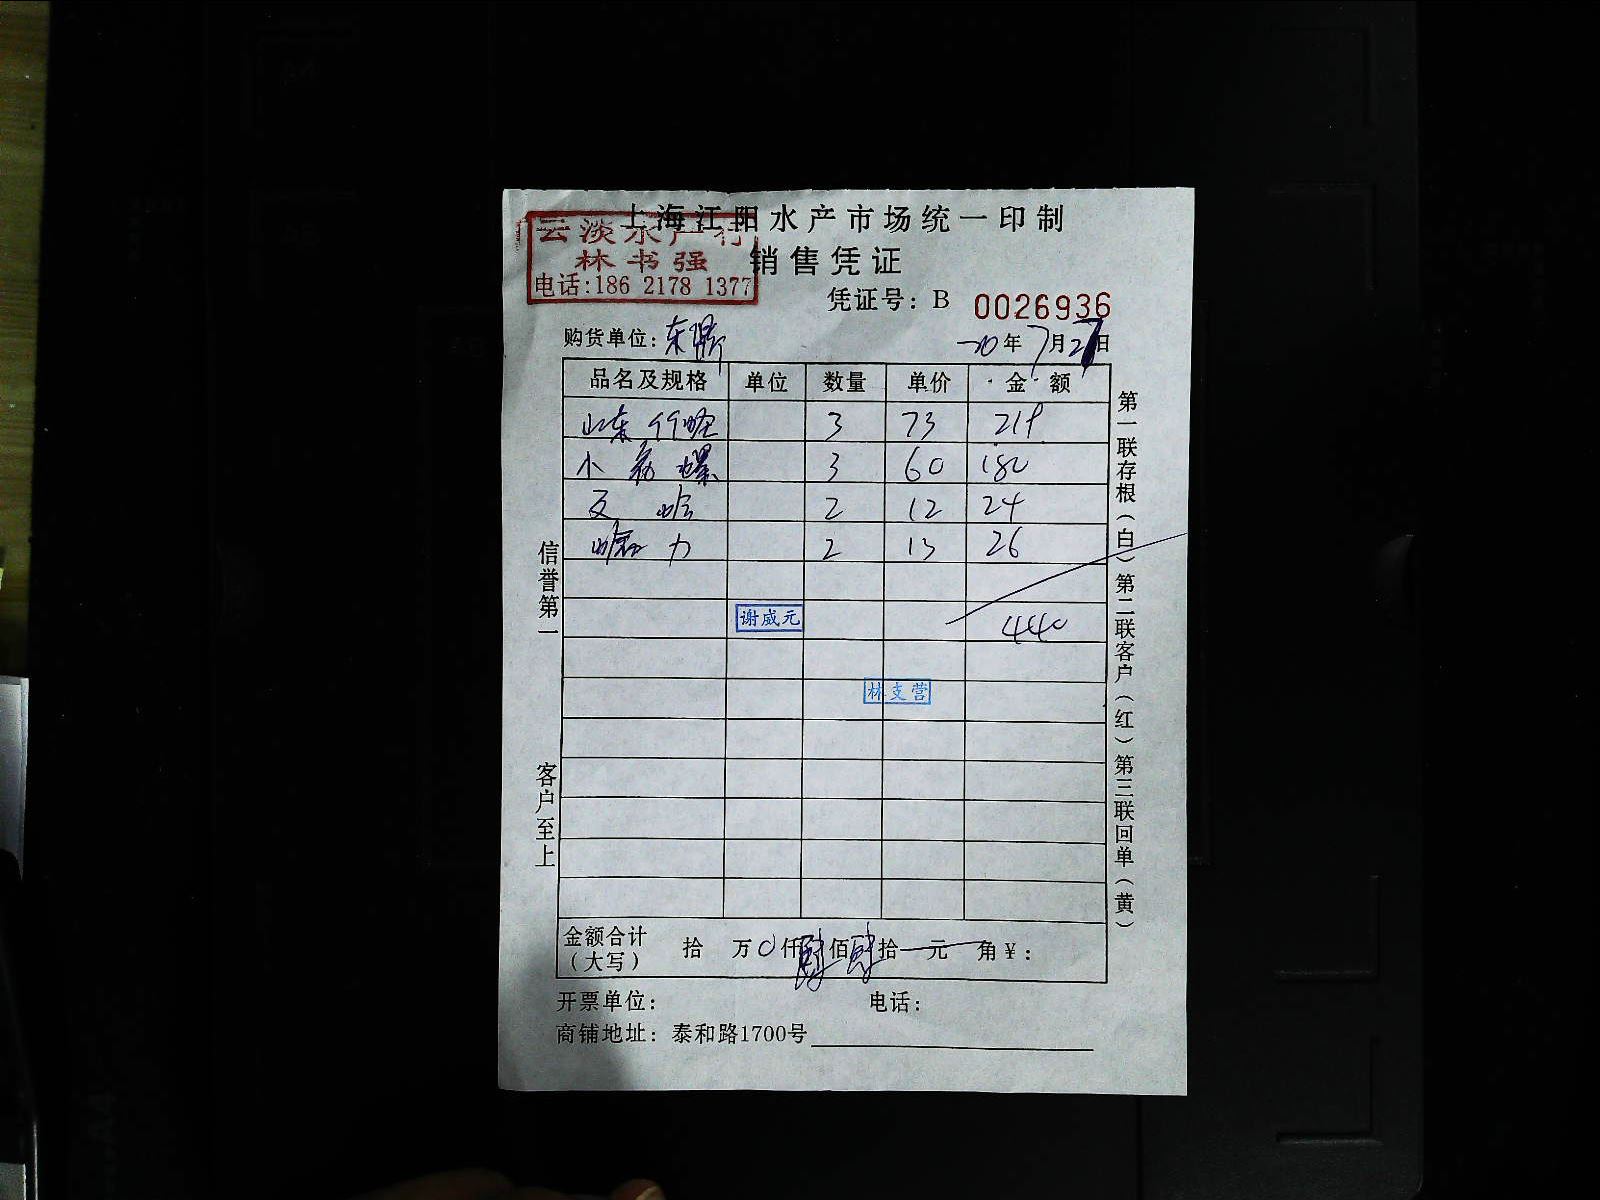 上海江阳水产市场统一印制
云淡水产行
林书强
电话:186 2178 1377
销售凭证
凭证号: B 0026936
购货单位: 东鼎 20年7月27日
品名及规格 单位 数量 单价 金额
山东竹蛏 3 73 219
小 螺 3 60 180
文蛤 2 12 24
2 13 26
谢威元 440
林支营
信誉第一
客户至上
第一联存根(白)第二联客户(红)第三联回单(黄)
金额合计(大写) 拾 万 0 仟 肆 佰 肆 拾 元 角 ¥:
开票单位: 电话:
商铺地址: 泰和路1700号